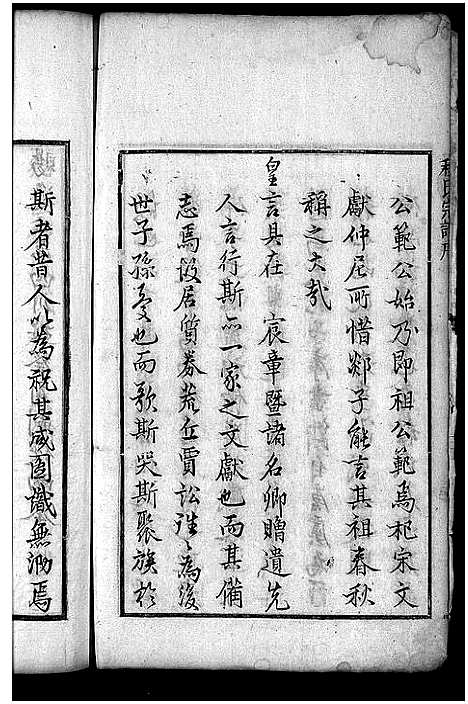 公範公始乃即祖公範焉杞宋文
獻仲尼所惜郯子能言其祖春秋
稱之大哉
皇言具在宸章暨諸名卿贈遺先
人言行斯亦一家之文獻也而其備
志焉設居質券荒丘賈訟謹〻為後
世子孫憂也而歌斯哭斯聚族於
斯者昔人以為祝其咸固識無泐焉